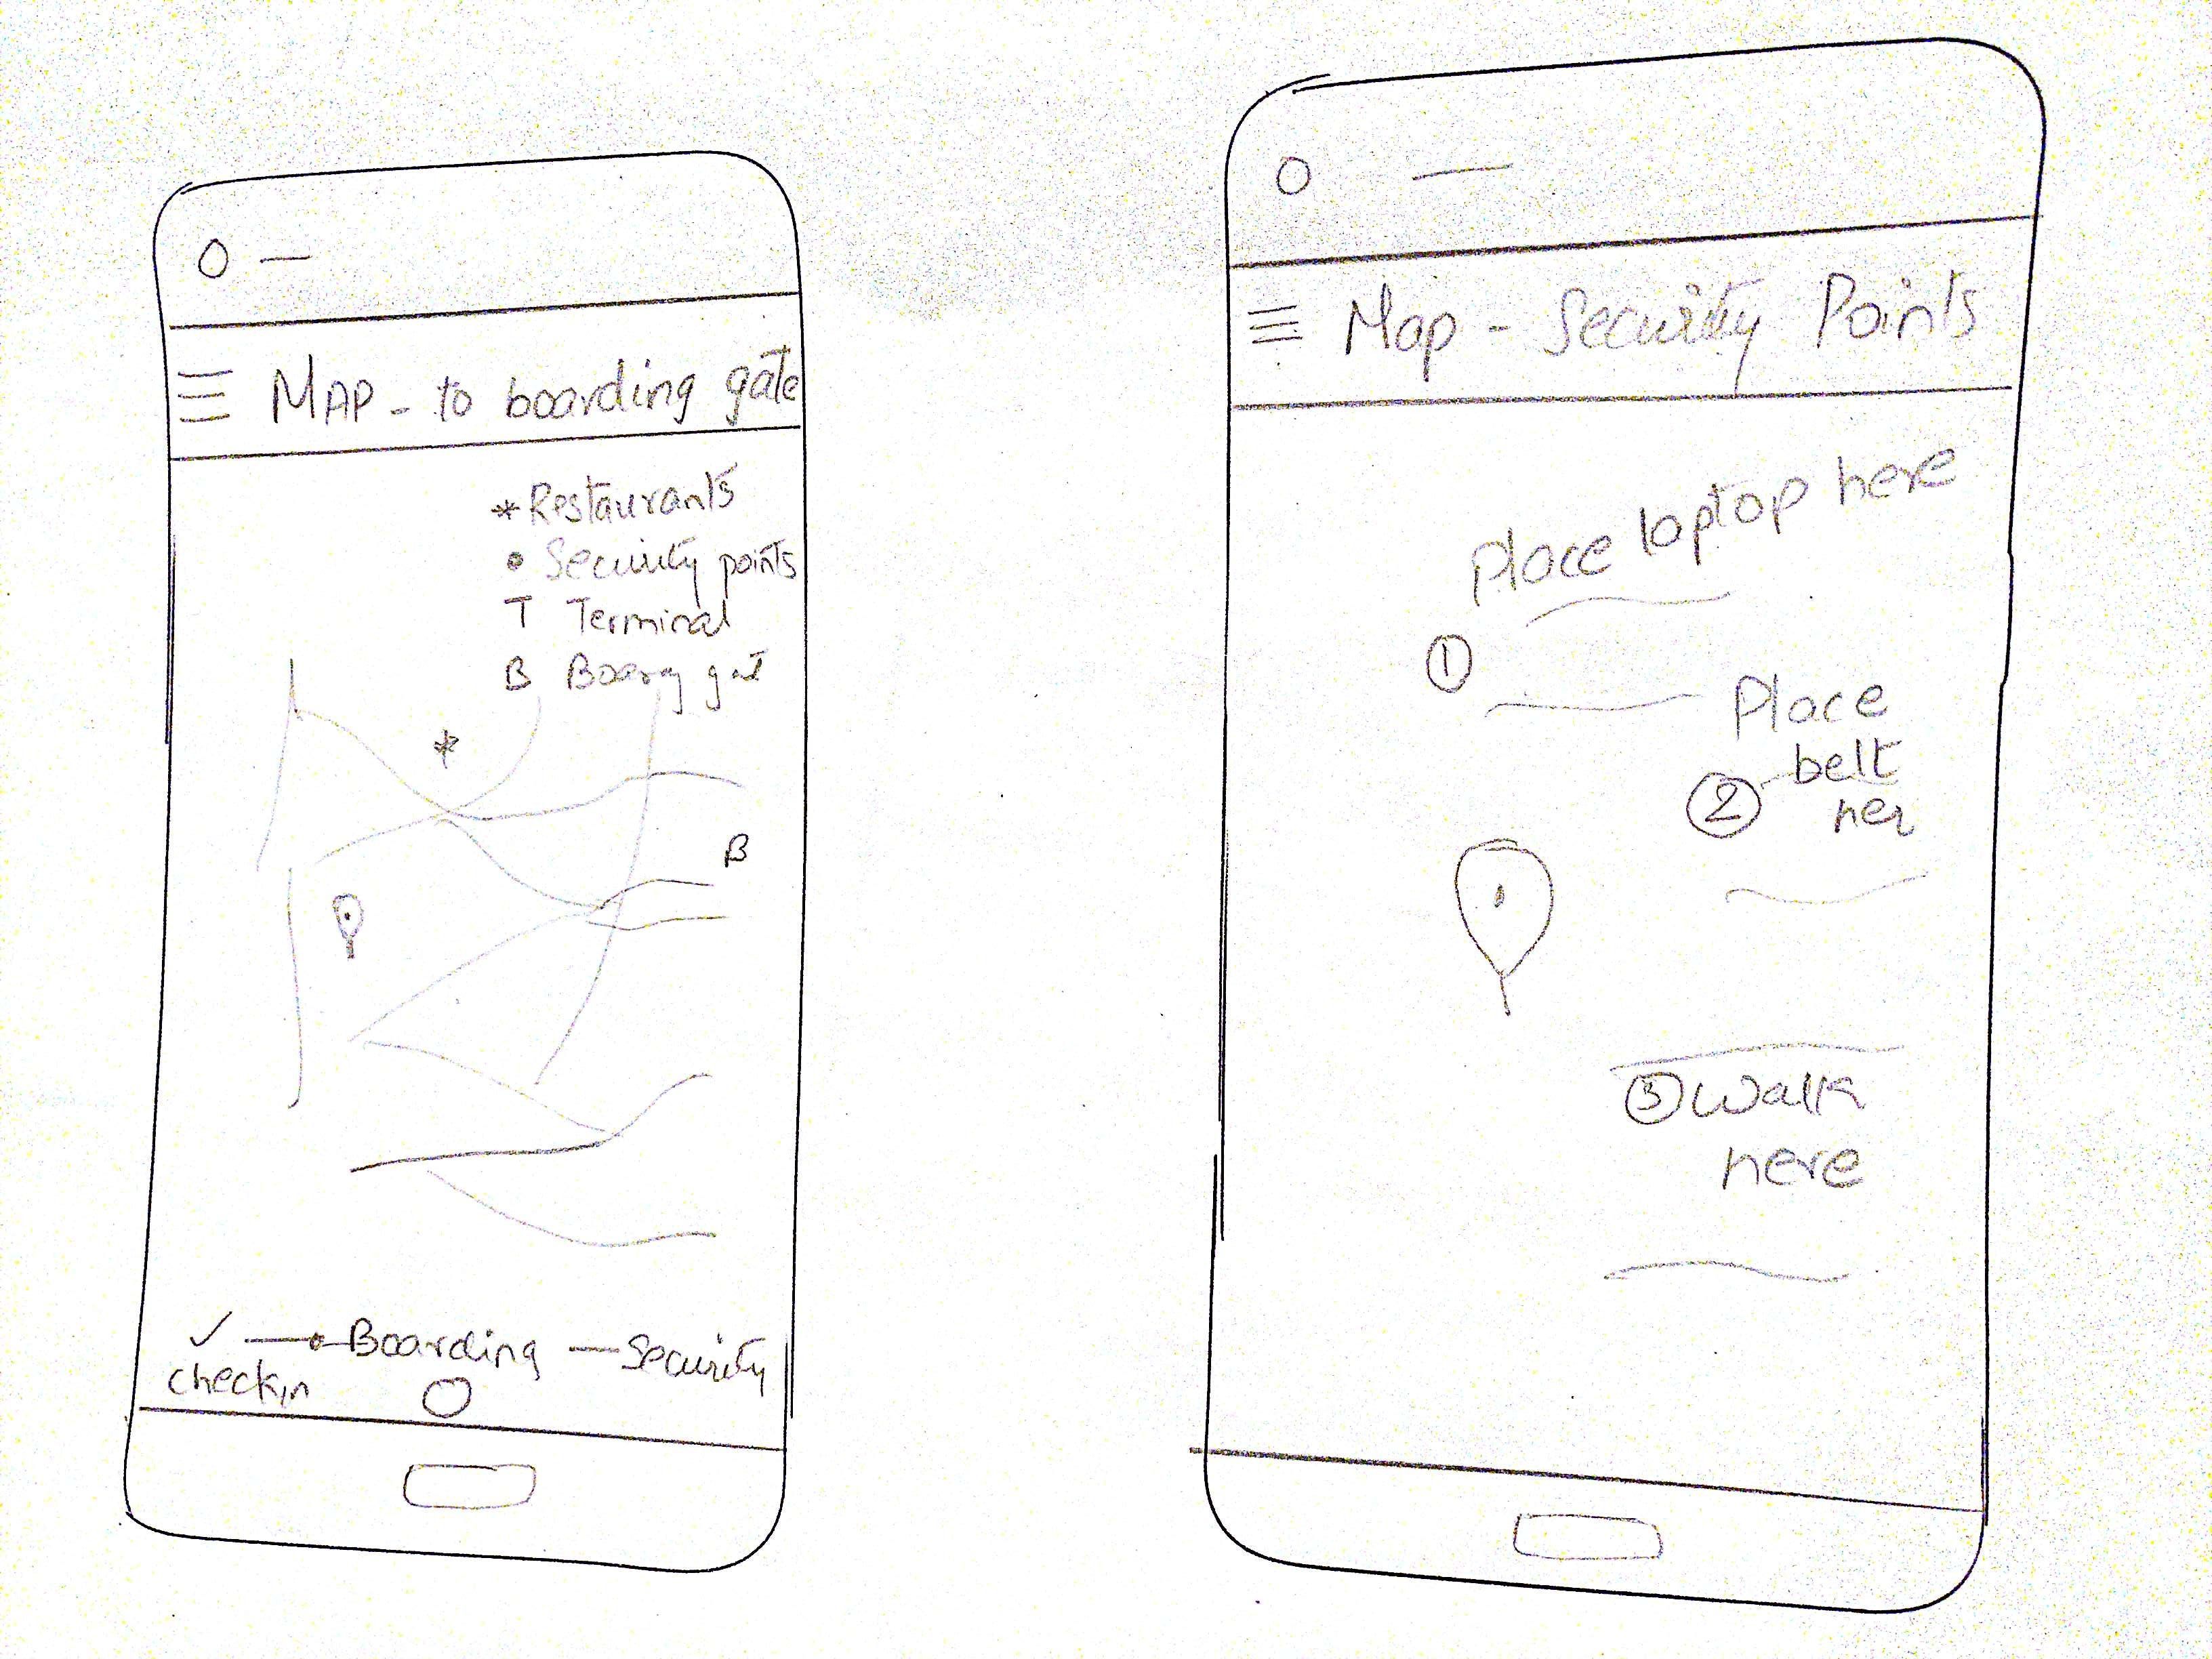 MAP - to boarding gate
* Restaurants
• Security points
T Terminal
B
*
B
✓ — Boarding — Security
checkin
Map - Security Points
Place laptop here
1
Place
belt
2
her
3 walk
here